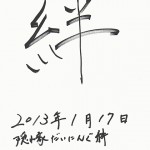 絆
2013年1月17日
隠れ家だいにんぐ絆